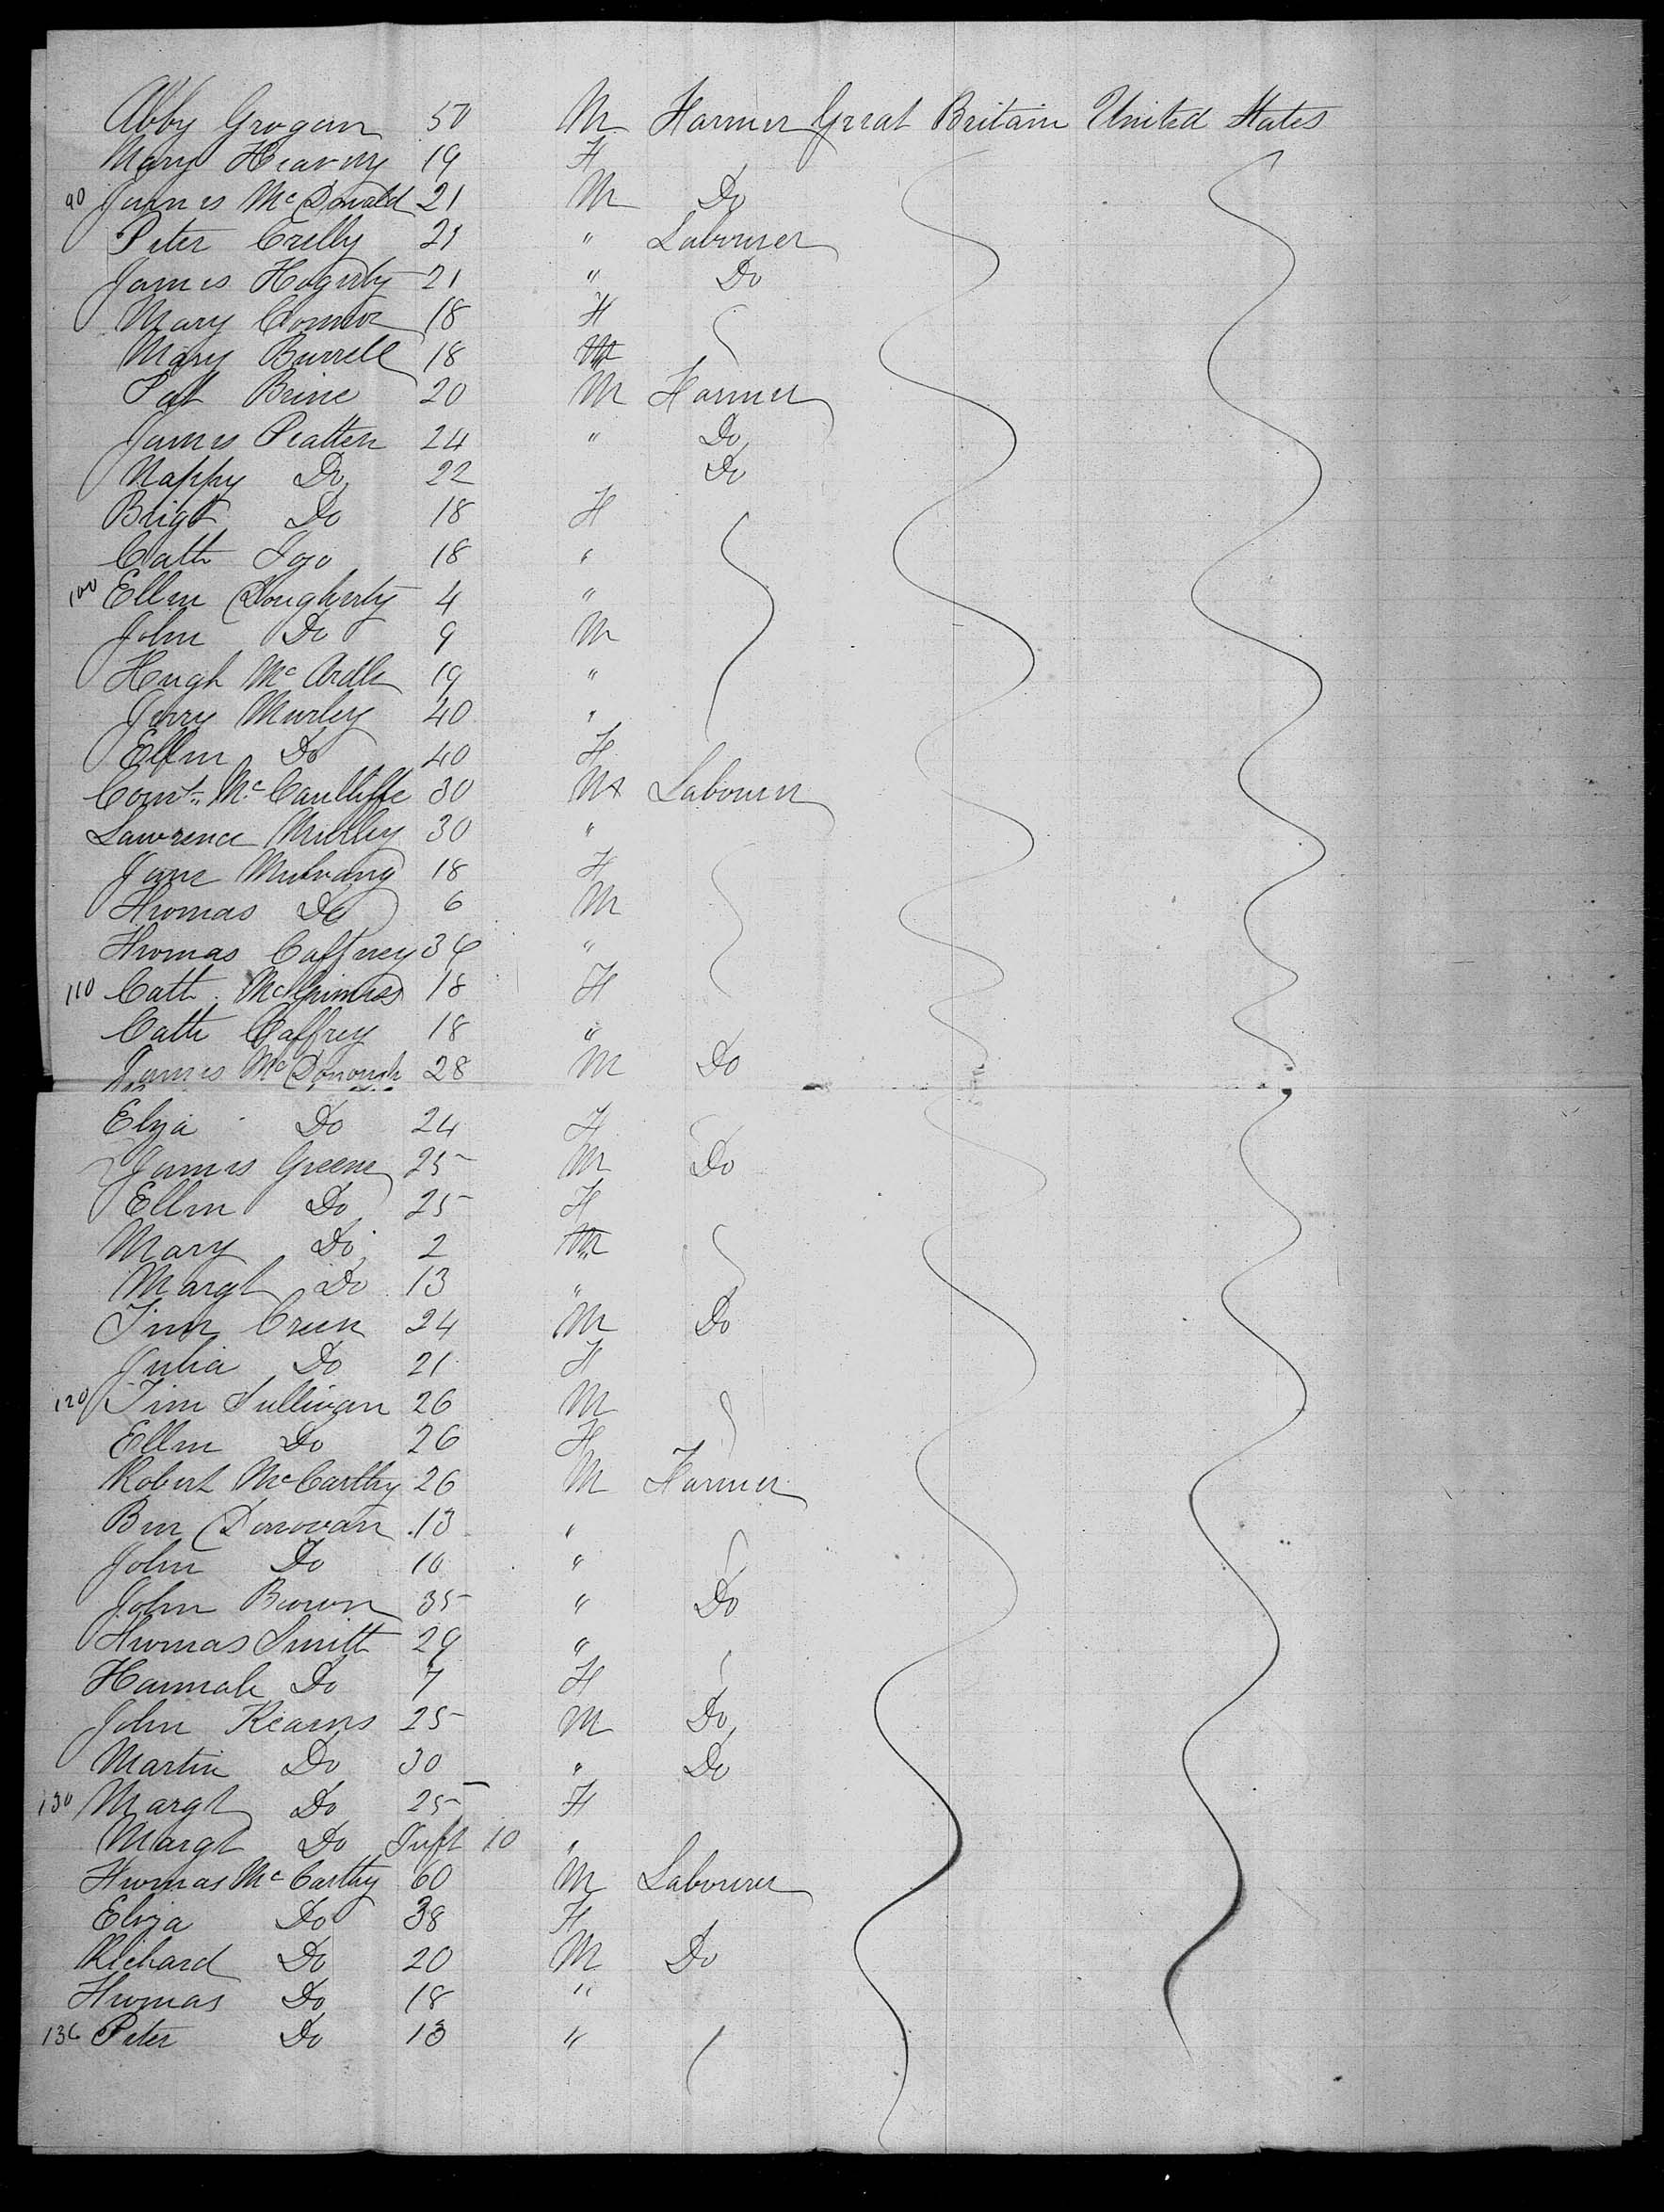 Abby Grogan 50 M Farmer Great Britain United States
Mary Heavey 19 F
90 James McDonald 21 M Do
Peter Crelly 21 " Labourer
James Hogerty 21 " Do
Mary Connor 18 F
Mary Burrell 18
Pat Brine 20 M Farmer
James Peatten 24 " Do
Nappy Do 22 Do
Brigt Do 18 F
Cath 18 "
100 Ellen Dougherty 4 "
John Do 9 M
Hugh McArdle 19 "
Jerry Murley 40 "
Ellen Do 40 F
McCaulliffe 30 M Labourer
Lawrence Murley 30 "
Jane Mulvany 18 F
Thomas Do 6 M
Thomas Caffney 36 "
110 Cath McGuiness 18 F
Cath Caffrey 18 "
James McDonough 28 M Do
Eliza Do 24 F
James Greene 25 M Do
Ellen Do 25 F
Mary Do 2
Margt Do 13 "
Tim Creen 24 M Do
Julia Do 21 F
120 Tim Sullivan 26 M
Ellen Do 26 F
Robert McCarthy 26 M Farmer
Ben Donovan 13 "
John Do 10 "
John Brown 35 " Do
Thomas Smith 29 "
Hannah Do 7 F
John Kearns 25 M Do
Martin Do 30 " Do
130 Margt Do 25 F
Margt Do Inft 10 "
Thomas McCarthy 60 M Labourer
Eliza Do 38 F
Richard Do 20 M Do
Thomas Do 18 "
136 Peter Do 13 "